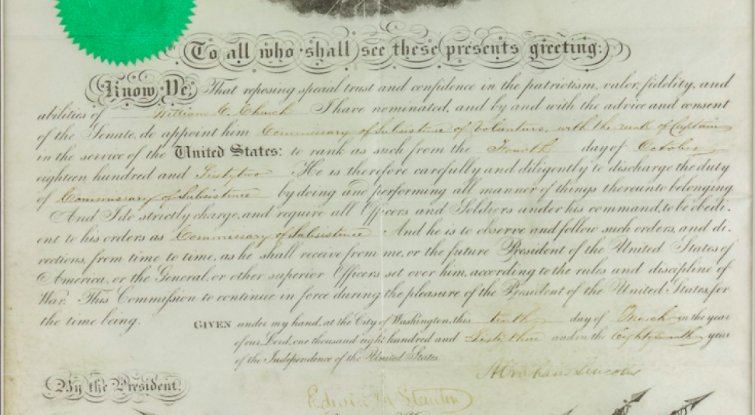 To all who shall see these presents greeting:
Know Ye, That reposing special trust and confidence in the patriotism, valor, fidelity, and
abilities of William C. Church I have nominated, and by and with the advice and consent
of the Senate, do appoint him Commissary of Subsistence of Volunteers, with the rank of Captain
in the service of the United States: to rank as such from the Fourth day of October
eighteen hundred and Sixty two. He is therefore carefully and diligently to discharge the duty
of Commissary of Subsistence by doing and performing all manner of things thereunto belonging
And I do strictly charge, and require all Officers and Soldiers under his command, to be obedi-
ent to his orders as Commissary of Subsistence And he is to observe and follow such orders, and di-
rections, from time to time, as he shall receive from me, or the future President of the United States of
America, or the General, or other superior Officers set over him, according to the rules and discipline of
War. This Commission to continue in force during the pleasure of the President of the United States, for
the time being.
GIVEN under my hand, at the City of Washington, this day of March in the year
of our Lord, one thousand eight hundred and Sixty three and in the Eighty seventh year
of the Independence of the United States
Abraham Lincoln
By the President.
Edwin M Stanton